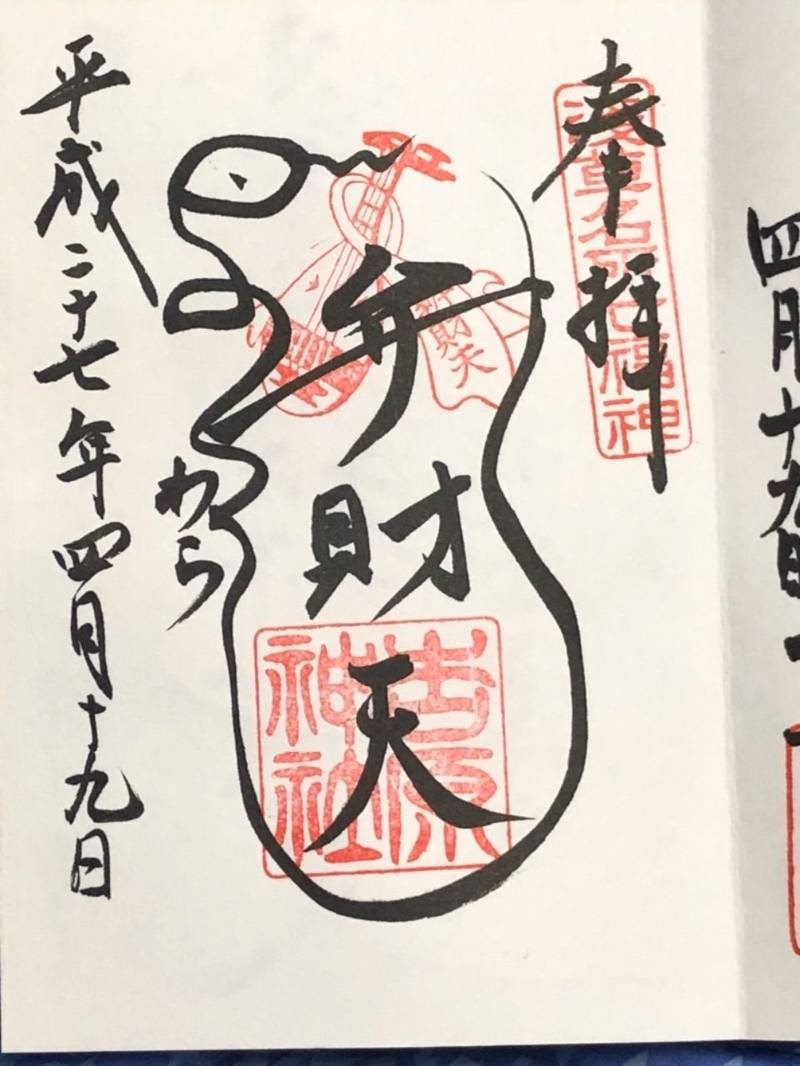 四月十九日
奉拝
浅草名所七福神
弁財天
弁財天
吉原神社
わら
平成二十七年四月十九日